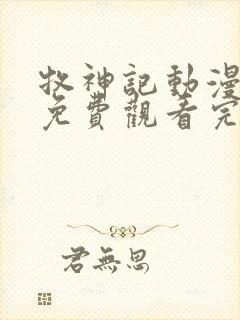 牧神記動漫
免費觀看完
君無思